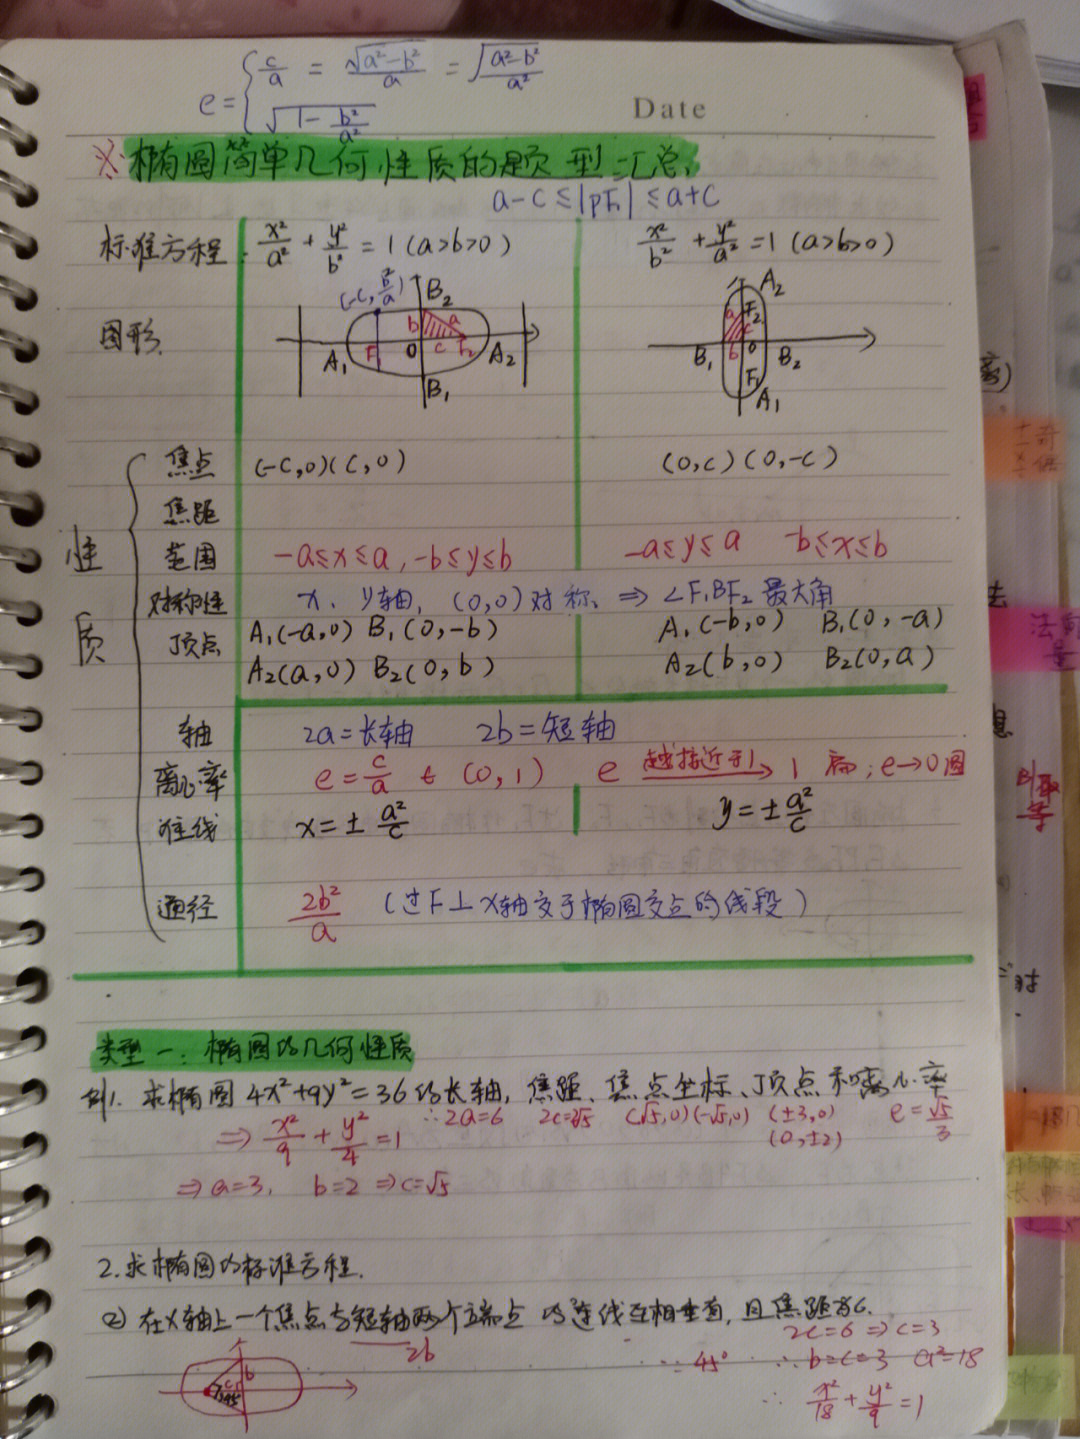 e = { c/a = √(a²-b²)/a = √((a²-b²)/a²)
√(1 - b²/a²)
Date
※ 椭圆简单几何性质的题型汇总
a-c ≤ |PF₁| ≤ a+c
标准方程: x²/a² + y²/b² = 1 (a>b>0) x²/b² + y²/a² = 1 (a>b>0)
图形
(-c, b²/a) B₂ b a A₁ F₁ O c F₂ A₂ B₁
A₂ a F₂ c B₁ b O B₂ F₁ A₁
性质
焦点 (-c,0) (c,0) (0,c) (0,-c)
焦距
范围 -a≤x≤a, -b≤y≤b -a≤y≤a -b≤x≤b
对称性 x、y轴, (0,0)对称, ⇒ ∠F₁BF₂最大角
顶点 A₁(-a,0) B₁(0,-b) A₁(-b,0) B₁(0,-a)
A₂(a,0) B₂(0,b) A₂(b,0) B₂(0,a)
轴 2a=长轴 2b=短轴
离心率 e = c/a ∈ (0,1) e 越接近于1 → 1 扁; e→0 圆
准线 x = ± a²/c y = ± a²/c
通径 2b²/a (过F⊥x轴交于椭圆交点的线段)
类型一: 椭圆的几何性质
例1. 求椭圆 4x²+9y²=36的长轴, 焦距、焦点坐标、顶点和离心率
⇒ x²/9 + y²/4 = 1 ∴2a=6 2c=2√5 (√5,0)(-√5,0) (±3,0) e = √5/3
(0,±2)
⇒ a=3, b=2 ⇒ c=√5
2.求椭圆的标准方程.
② 在X轴上一个焦点与短轴两个端点的连线互相垂直, 且焦距为6.
2b 2c=6 ⇒ c=3
∵ 45° ∴ b=c=3 a²=18
∴ x²/18 + y²/9 = 1
b c 45°